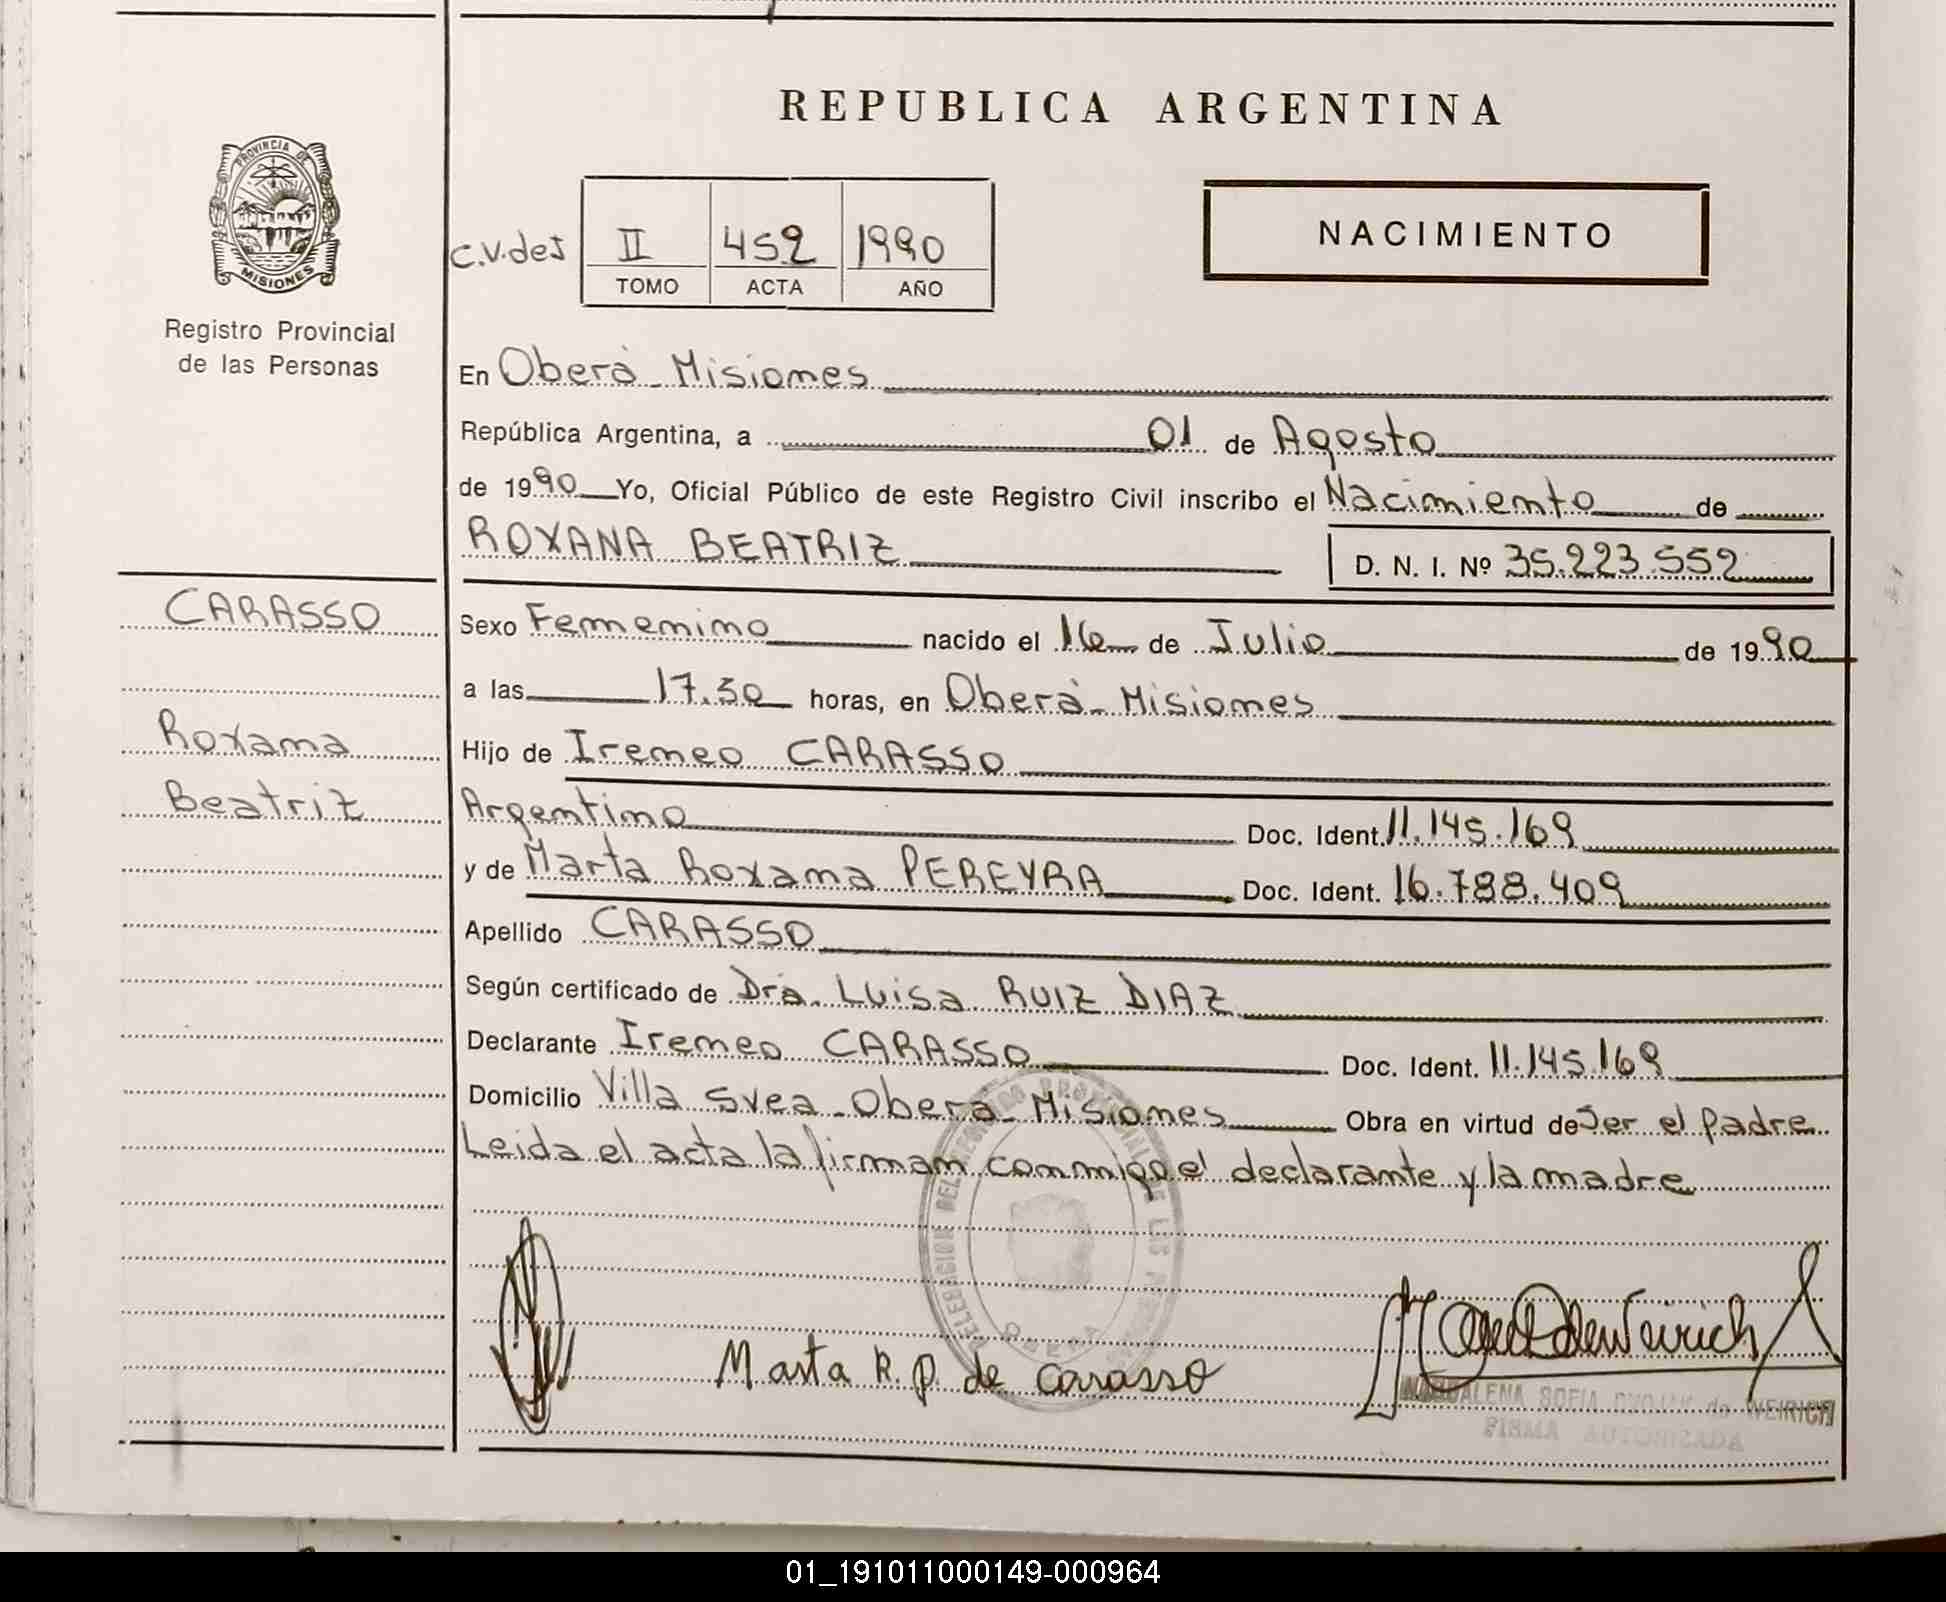 REPUBLICA ARGENTINA
PROVINCIA DE
MISIONES
Registro Provincial
de las Personas
C.V.des II 452 1990
TOMO ACTA AÑO
NACIMIENTO
En Oberà - Misiones
República Argentina, a 01 de Agosto
de 1990 Yo, Oficial Público de este Registro Civil inscribo el Nacimiento de
ROXANA BEATRIZ D. N. I. Nº 35.223.552
CARASSO
Roxana
Beatriz
Sexo Femenino nacido el 16 de Julio de 1990
a las 17.30 horas, en Oberà - Misiones
Hijo de Ireneo CARASSO
Argentino Doc. Ident. 11.145.169
y de Marta Roxana PEREYRA Doc. Ident. 16.788.409
Apellido CARASSO
Según certificado de Dra. Luisa RUIZ DIAZ
Declarante Ireneo CARASSO Doc. Ident. 11.145.169
Domicilio Villa Svea - Oberà - Misiones Obra en virtud de Ser el padre
Leida el acta la firman conmigo el declarante y la madre
DELEGACION DEL REGISTRO PROVINCIAL DE LAS
OBERA
Marta R. P. de Carasso
MAGDALENA SOFIA de WEIRICH
FIRMA AUTORIZADA
01_191011000149-000964